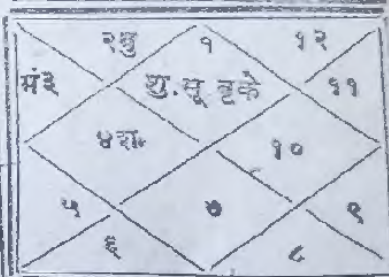 २बु १ १२
मं३ शु.सू बृके ११
४रा. १०
५ ७ ९
६ ८